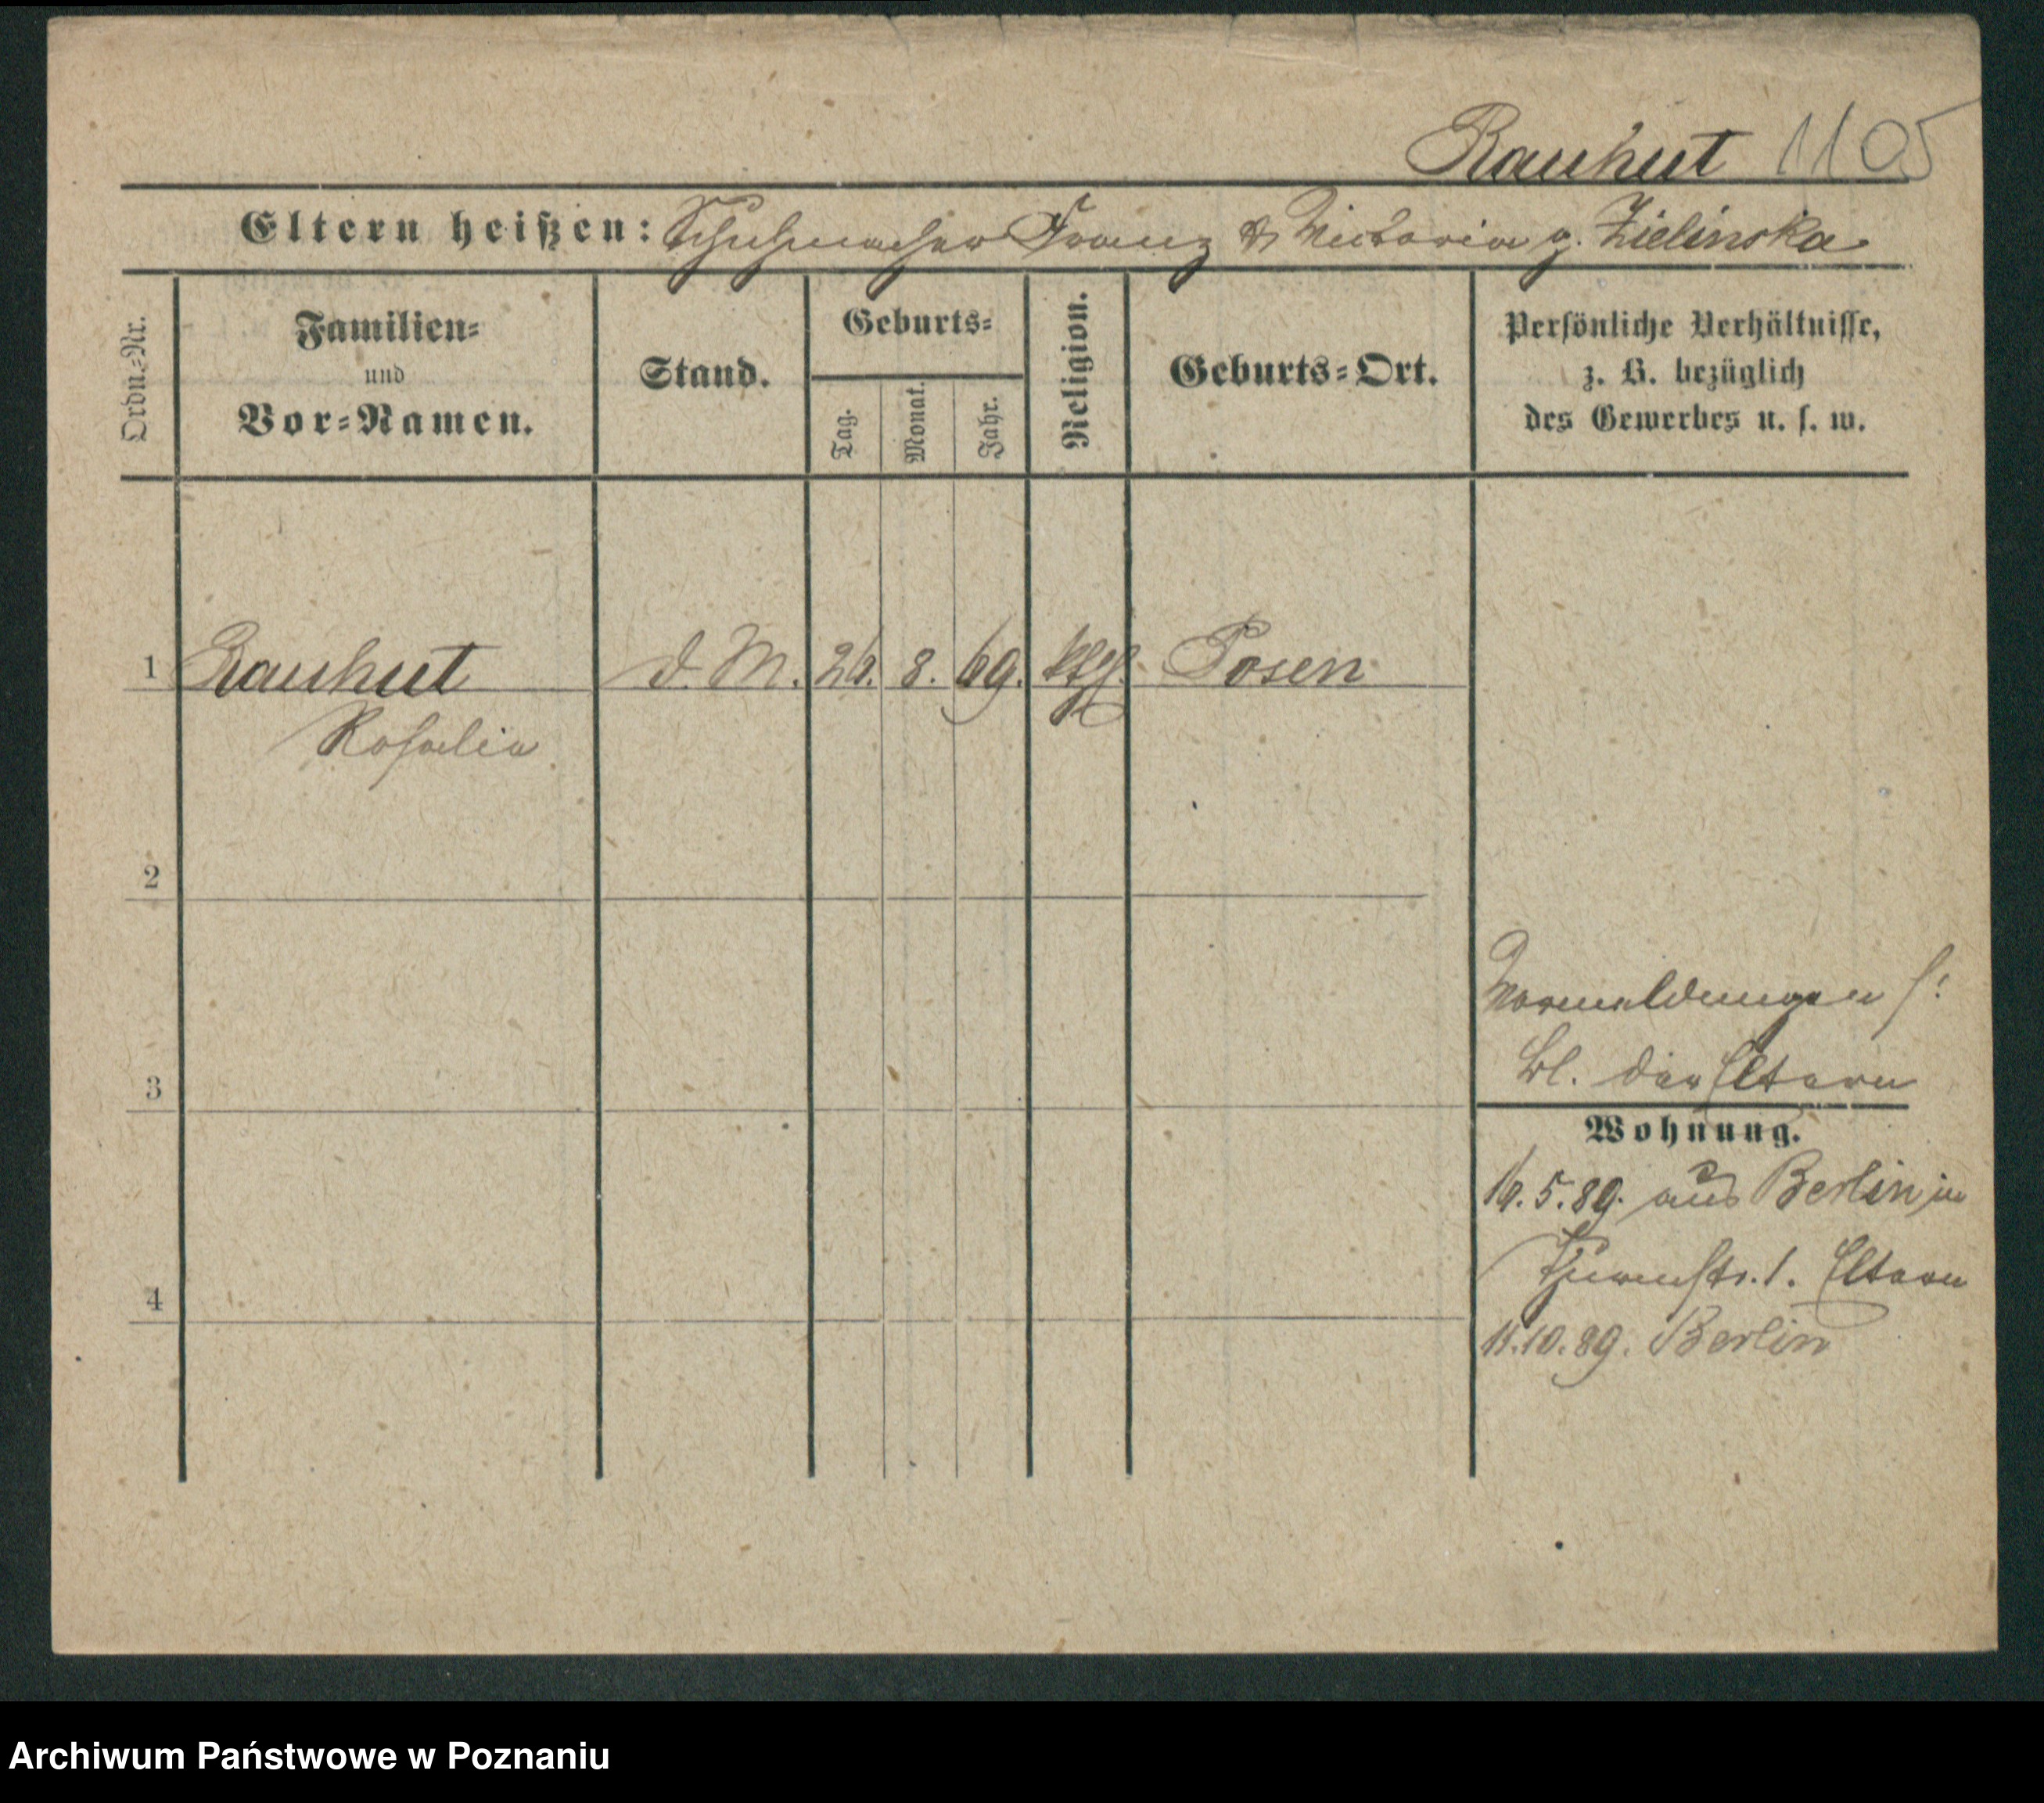 Rauhut 1105
Eltern heißen: Schuhmacher Franz & Victoria g. Zielinska
Ordn.=Nr.
Familien=
und
Vor=Namen.
Stand.
Geburts=
Tag.
Monat.
Jahr.
Religion.
Geburts=Ort.
Persönliche Verhältnisse,
z. B. bezüglich
des Gewerbes u. s. w.
1 Rauhut d. M. 26. 8. 69. kth. Posen
Rosalia
2
3
4
Vormeldungen s:
Bl. der Eltern
Wohnung.
16.5.89. aus Berlin in
Thurmstr. 1. Eltern
11.10.89. Berlin
Archiwum Państwowe w Poznaniu